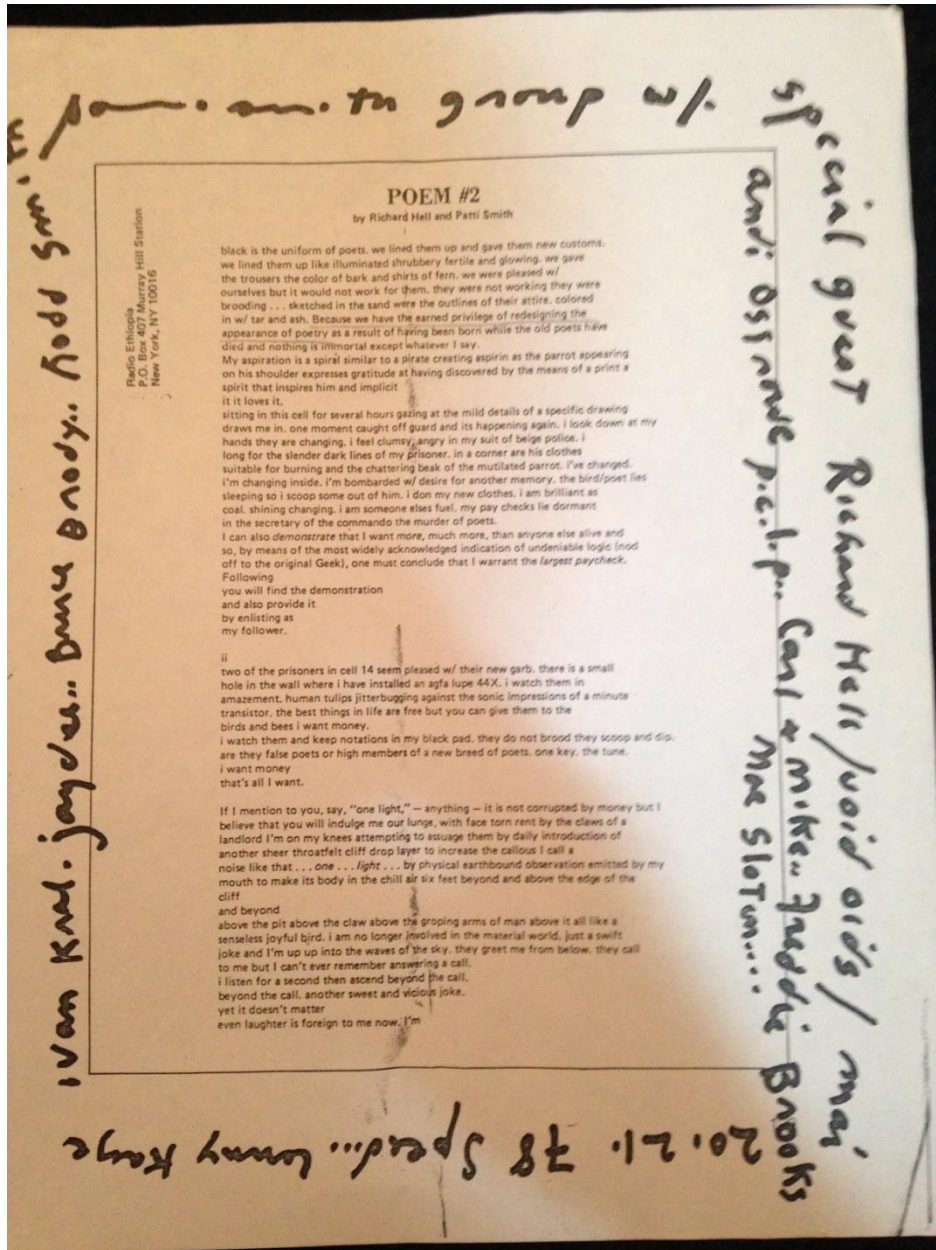 patti smith group w/
special guest Richard Hell/void oid's/ may
20. 21. 78 Speed... Lenny Kaye
ivan Kral. jay dee.. Bruce Brody.. Rodd Smith
andi Ostrowe p.c.l.p.. Carl & mike.. Freddie Brooks
Radio Ethiopia
P.O. Box 407 Murray Hill Station
New York, NY 10016
POEM #2
by Richard Hell and Patti Smith
black is the uniform of poets. we lined them up and gave them new customs.
we lined them up like illuminated shrubbery fertile and glowing. we gave
the trousers the color of bark and shirts of fern. we were pleased w/
ourselves but it would not work for them. they were not working they were
brooding . . . sketched in the sand were the outlines of their attire. colored
in w/ tar and ash. Because we have the earned privilege of redesigning the
appearance of poetry as a result of having been born while the old poets have
died and nothing is immortal except whatever I say.
My aspiration is a spiral similar to a pirate creating aspirin as the parrot appearing
on his shoulder expresses gratitude at having discovered by the means of a print a
spirit that inspires him and implicit
it it loves it.
sitting in this cell for several hours gazing at the mild details of a specific drawing
draws me in. one moment caught off guard and its happening again. i look down at my
hands they are changing. i feel clumsy, angry in my suit of beige police. i
long for the slender dark lines of my prisoner. in a corner are his clothes
suitable for burning and the chattering beak of the mutilated parrot. i've changed.
i'm changing inside. i'm bombarded w/ desire for another memory. the bird/poet lies
sleeping so i scoop some out of him. i don my new clothes. i am brilliant as
coal. shining changing. i am someone elses fuel. my pay checks lie dormant
in the secretary of the commando the murder of poets.
I can also demonstrate that I want more, much more, than anyone else alive and
so, by means of the most widely acknowledged indication of undeniable logic (nod
off to the original Geek), one must conclude that I warrant the largest paycheck.
Following
you will find the demonstration
and also provide it
by enlisting as
my follower.
ii
two of the prisoners in cell 14 seem pleased w/ their new garb. there is a small
hole in the wall where i have installed an agfa lupe 44X. i watch them in
amazement. human tulips jitterbugging against the sonic impressions of a minute
transistor. the best things in life are free but you can give them to the
birds and bees i want money.
i watch them and keep notations in my black pad. they do not brood they scoop and dip.
are they false poets or high members of a new breed of poets. one key. the tune.
i want money
that's all I want.
If I mention to you, say, "one light," – anything – it is not corrupted by money but I
believe that you will indulge me our lunge, with face torn rent by the claws of a
landlord I'm on my knees attempting to assuage them by daily introduction of
another sheer throatfelt cliff drop layer to increase the callous I call a
noise like that . . . one . . . light . . . by physical earthbound observation emitted by my
mouth to make its body in the chill air six feet beyond and above the edge of the
cliff
and beyond
above the pit above the claw above the groping arms of man above it all like a
senseless joyful bird. i am no longer involved in the material world. just a swift
joke and I'm up up into the waves of the sky. they greet me from below. they call
to me but I can't ever remember answering a call.
i listen for a second then ascend beyond the call.
beyond the call. another sweet and vicious joke.
yet it doesn't matter
even laughter is foreign to me now. I'm